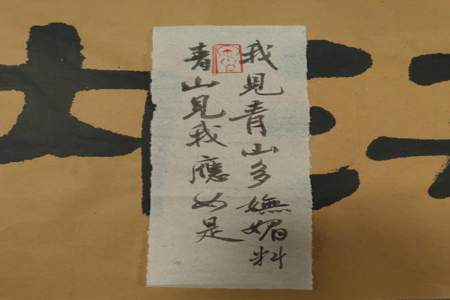 我見青山多嫵媚料
青山見我應如是